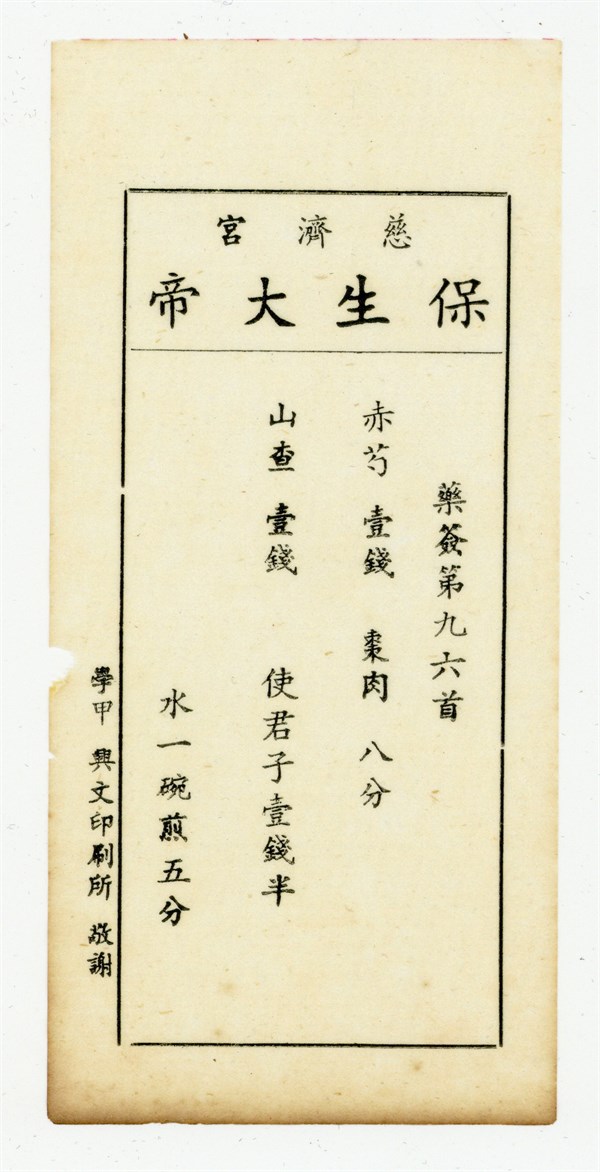 慈濟宮
保生大帝
藥簽第九六首
赤芍 壹錢 棗肉 八分
山查 壹錢 使君子壹錢半
水一碗煎五分
學甲 興文印刷所 敬謝